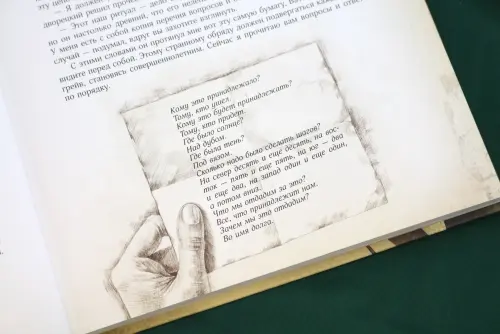 — Я должен
дворецкий решил проч
— Этот наш ритуал — дело
но он настолько древний, что его неле
У меня есть с собой копия перечня вопросов и
случай — подумал, вдруг вы захотите взглянуть.
С этими словами он протянул мне вот эту самую бумагу, Ва
видите перед собой. Этому странному обряду должен подвергаться каж
грейв, становясь совершеннолетним. Сейчас я прочитаю вам вопросы и ответ
по порядку.
Кому это принадлежало?
Тому, кто ушел.
Кому это будет принадлежать?
Тому, кто придет.
Где было солнце?
Над дубом.
Где была тень?
Под вязом.
Сколько надо было сделать шагов?
На север десять и еще десять, на вос-
ток — пять и еще пять, на юг — два
и еще два, на запад один и еще один,
а потом вниз.
Что мы отдадим за это?
Все, что принадлежит нам.
Зачем мы это отдадим?
Во имя долга.